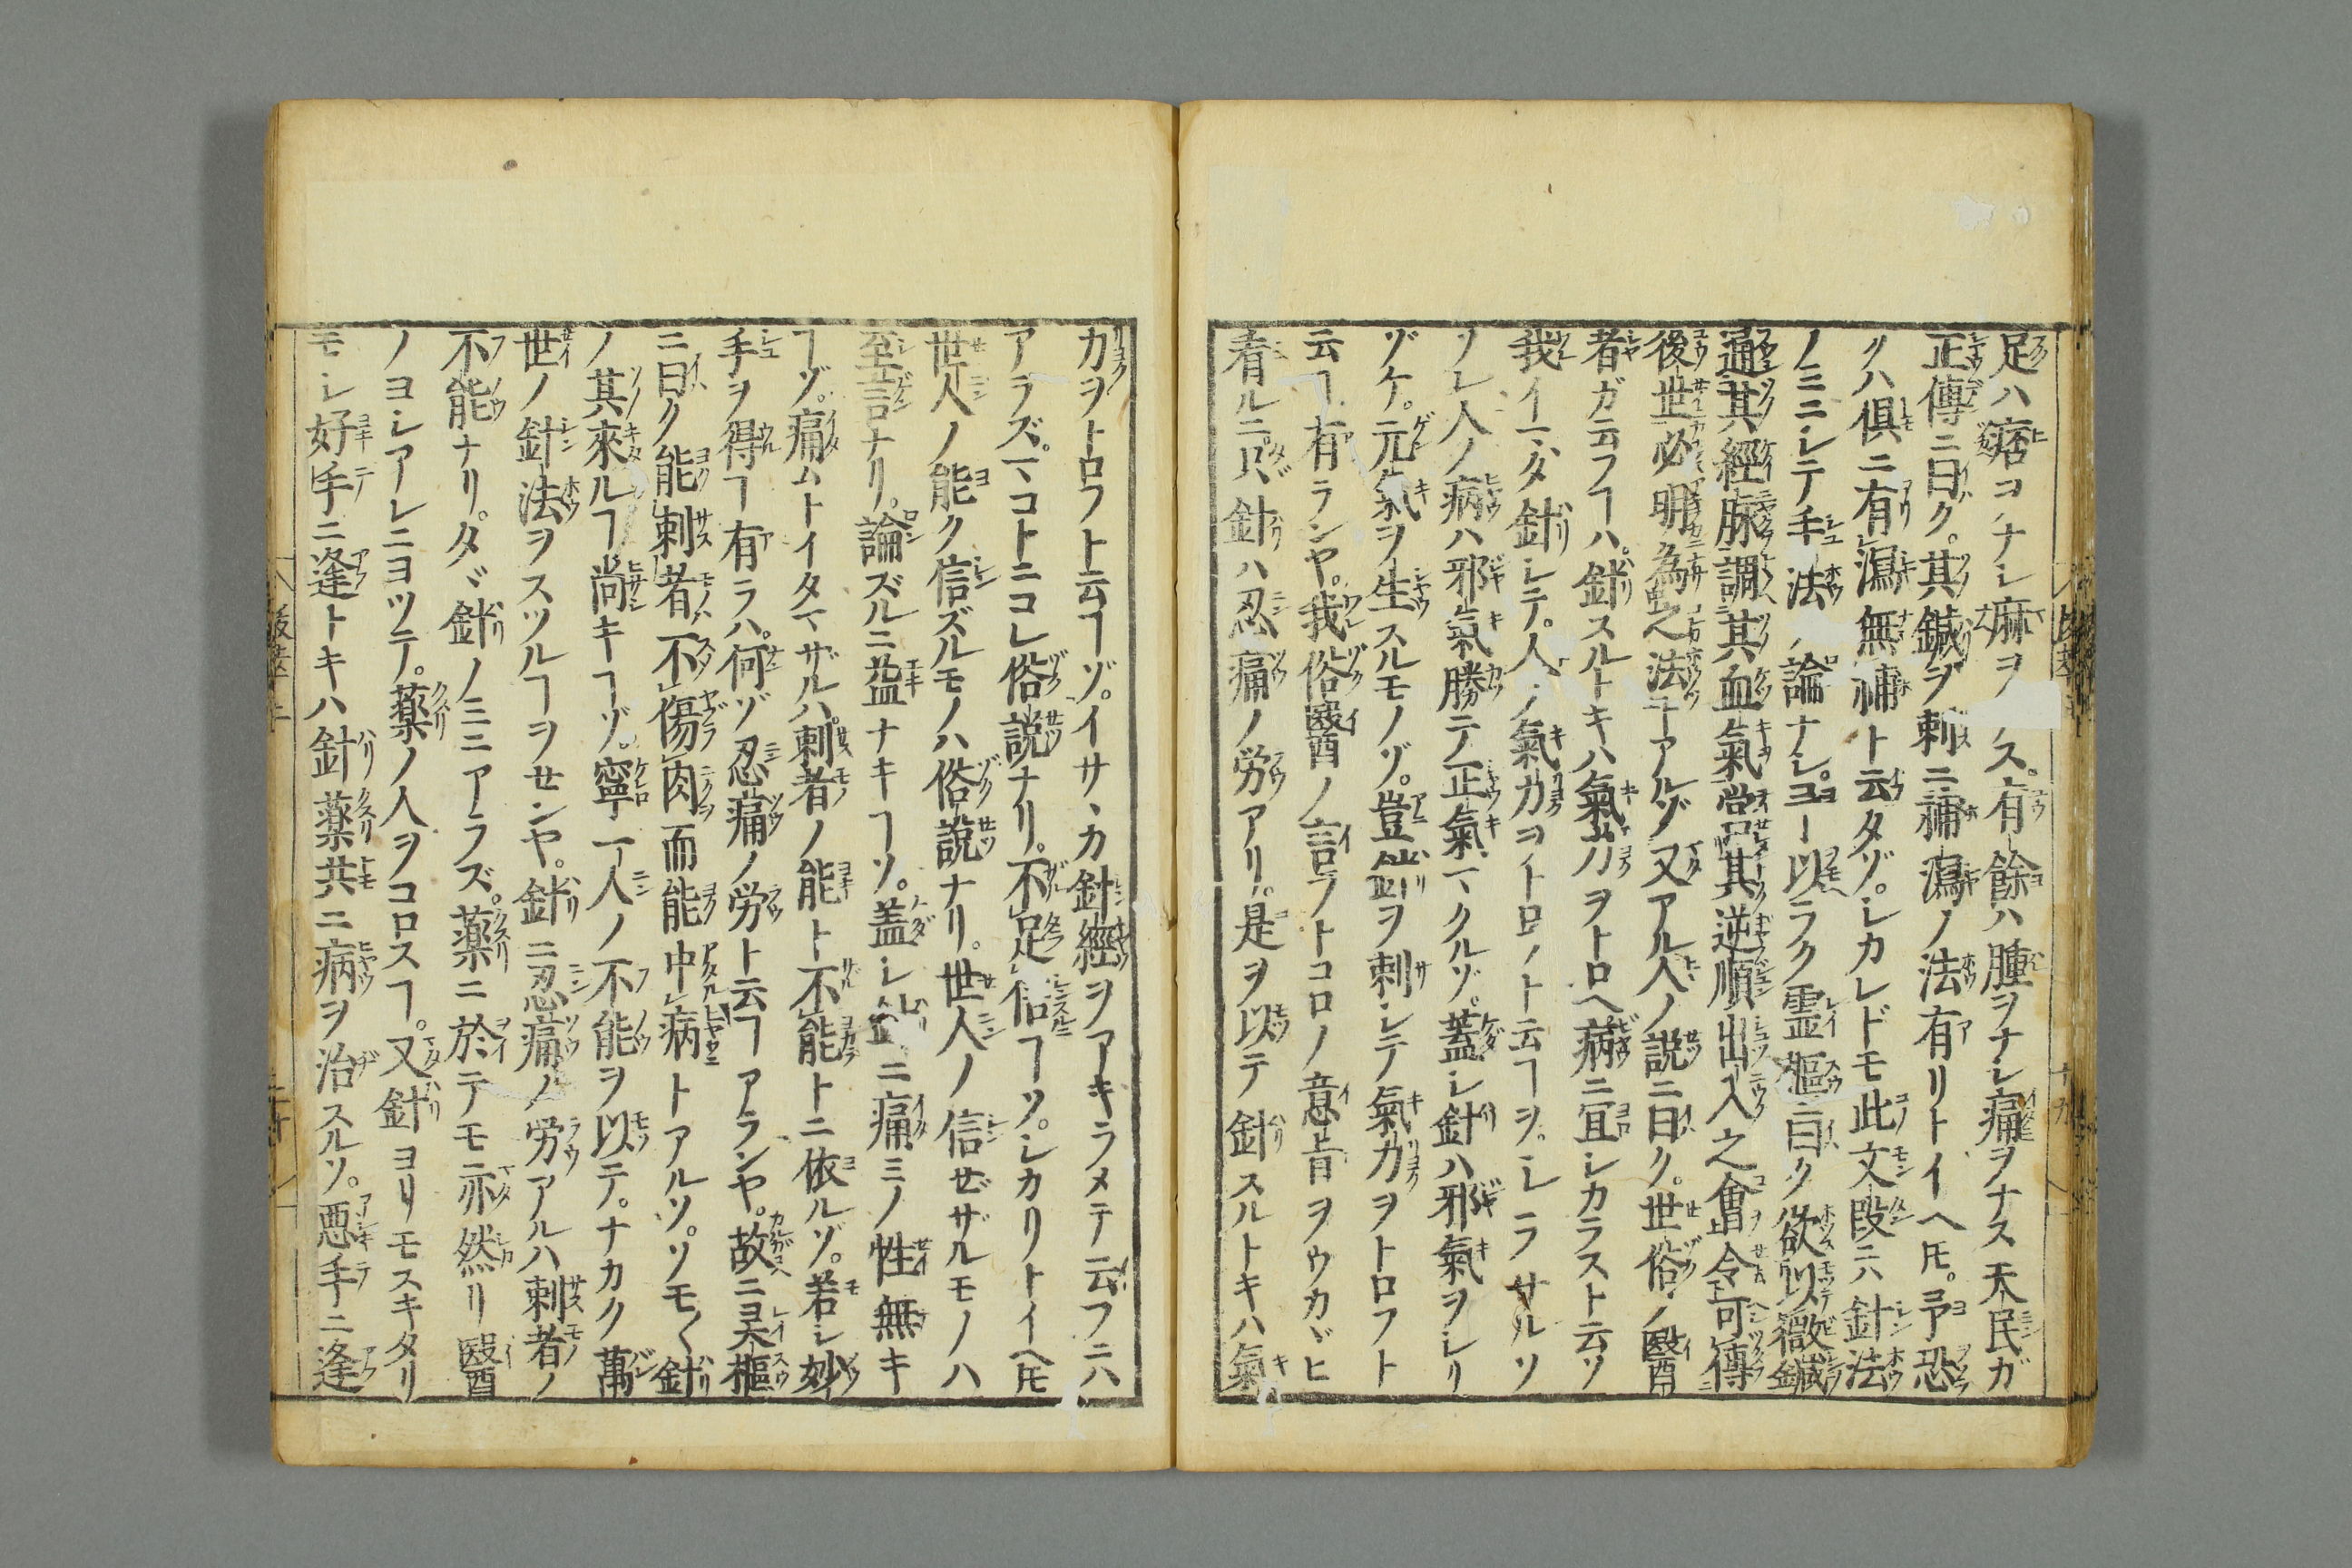 足ハ痞ヲナシ麻ヲ ス。有餘ハ腫ヲナシ痛ヲナス天民ガ
正傳ニ曰ク。其鍼ヲ刺ニ補瀉ノ法有リトイヘㇳモ。予恐
クハ倶ニ有瀉無補ト云タゾ。シカレドモ此文段ニハ針法
ノミニシテ手法ノ論ナシ。ヨー以ラク霊樞ニ曰ク欲以微鍼
通其經脉調其血氣営其逆順出入之會令可傳
後世必明為之法ヿアルゾ又アル人ノ説ニ曰ク。世俗ノ醫
者ガ云フヿハ。針スルトキハ氣力ヲトロヘ病ニ宜シカラスト云ソ
我イマダ針シテ。人ノ氣力ヲイトロノト云ヿヲ。シラサルソ
ソレ人ノ病ハ邪氣勝テ正氣マクルゾ。蓋シ針ハ邪氣ヲシリ
ヅケ。元氣ヲ生スルモノゾ。豈針ヲ刺シテ氣力ヲトロフト
云ヿ有ランヤ。我俗醫ノ言フトコロノ意旨ヲウカヾヒ
看ルニ只針ハ忍痛ノ労アリ。是ヲ以テ針スルトキハ氣
力ヲトロフト云ヿゾ。イサヽカ針經ヲアキラメテ云フニハ
アラズ。マコトニコレ俗説ナリ。不足信ヿソ。シカリトイヘㇳモ
世人ノ能ク信ズルモノハ俗説ナリ。世人ノ信ぜザルモノハ
至言ナリ。論ズルニ益ナキヿソ。盖シ針ニ痛ミノ性無キ
ヿゾ。痛ムトイタマザルハ刺者ノ能ト不能トニ依ルゾ。若シ妙
手ヲ得ヿ有ラハ。何ゾ忍痛ノ労ト云ヿアランヤ。故ニ灵樞
ニ曰ク能刺者不傷肉而能中病トアルソ。ソモ〱針
ノ其來ルヿ尚キヿゾ。寧一人ノ不能ヲ以テ。ナカク萬
世ノ針法ヲスツルヿヲせンヤ。針ニ忍痛ノ労アルハ刺者ノ
不能ナリ。タヾ針ノミニアラズ。薬ニ於テモ亦然リ醫
ノヨシアシニヨツテ。薬ノ人ヲコロスヿ。又針ヨリモスキタリ
モシ好手ニ逢トキハ針薬共ニ病ヲ治スルソ。悪手ニ逢